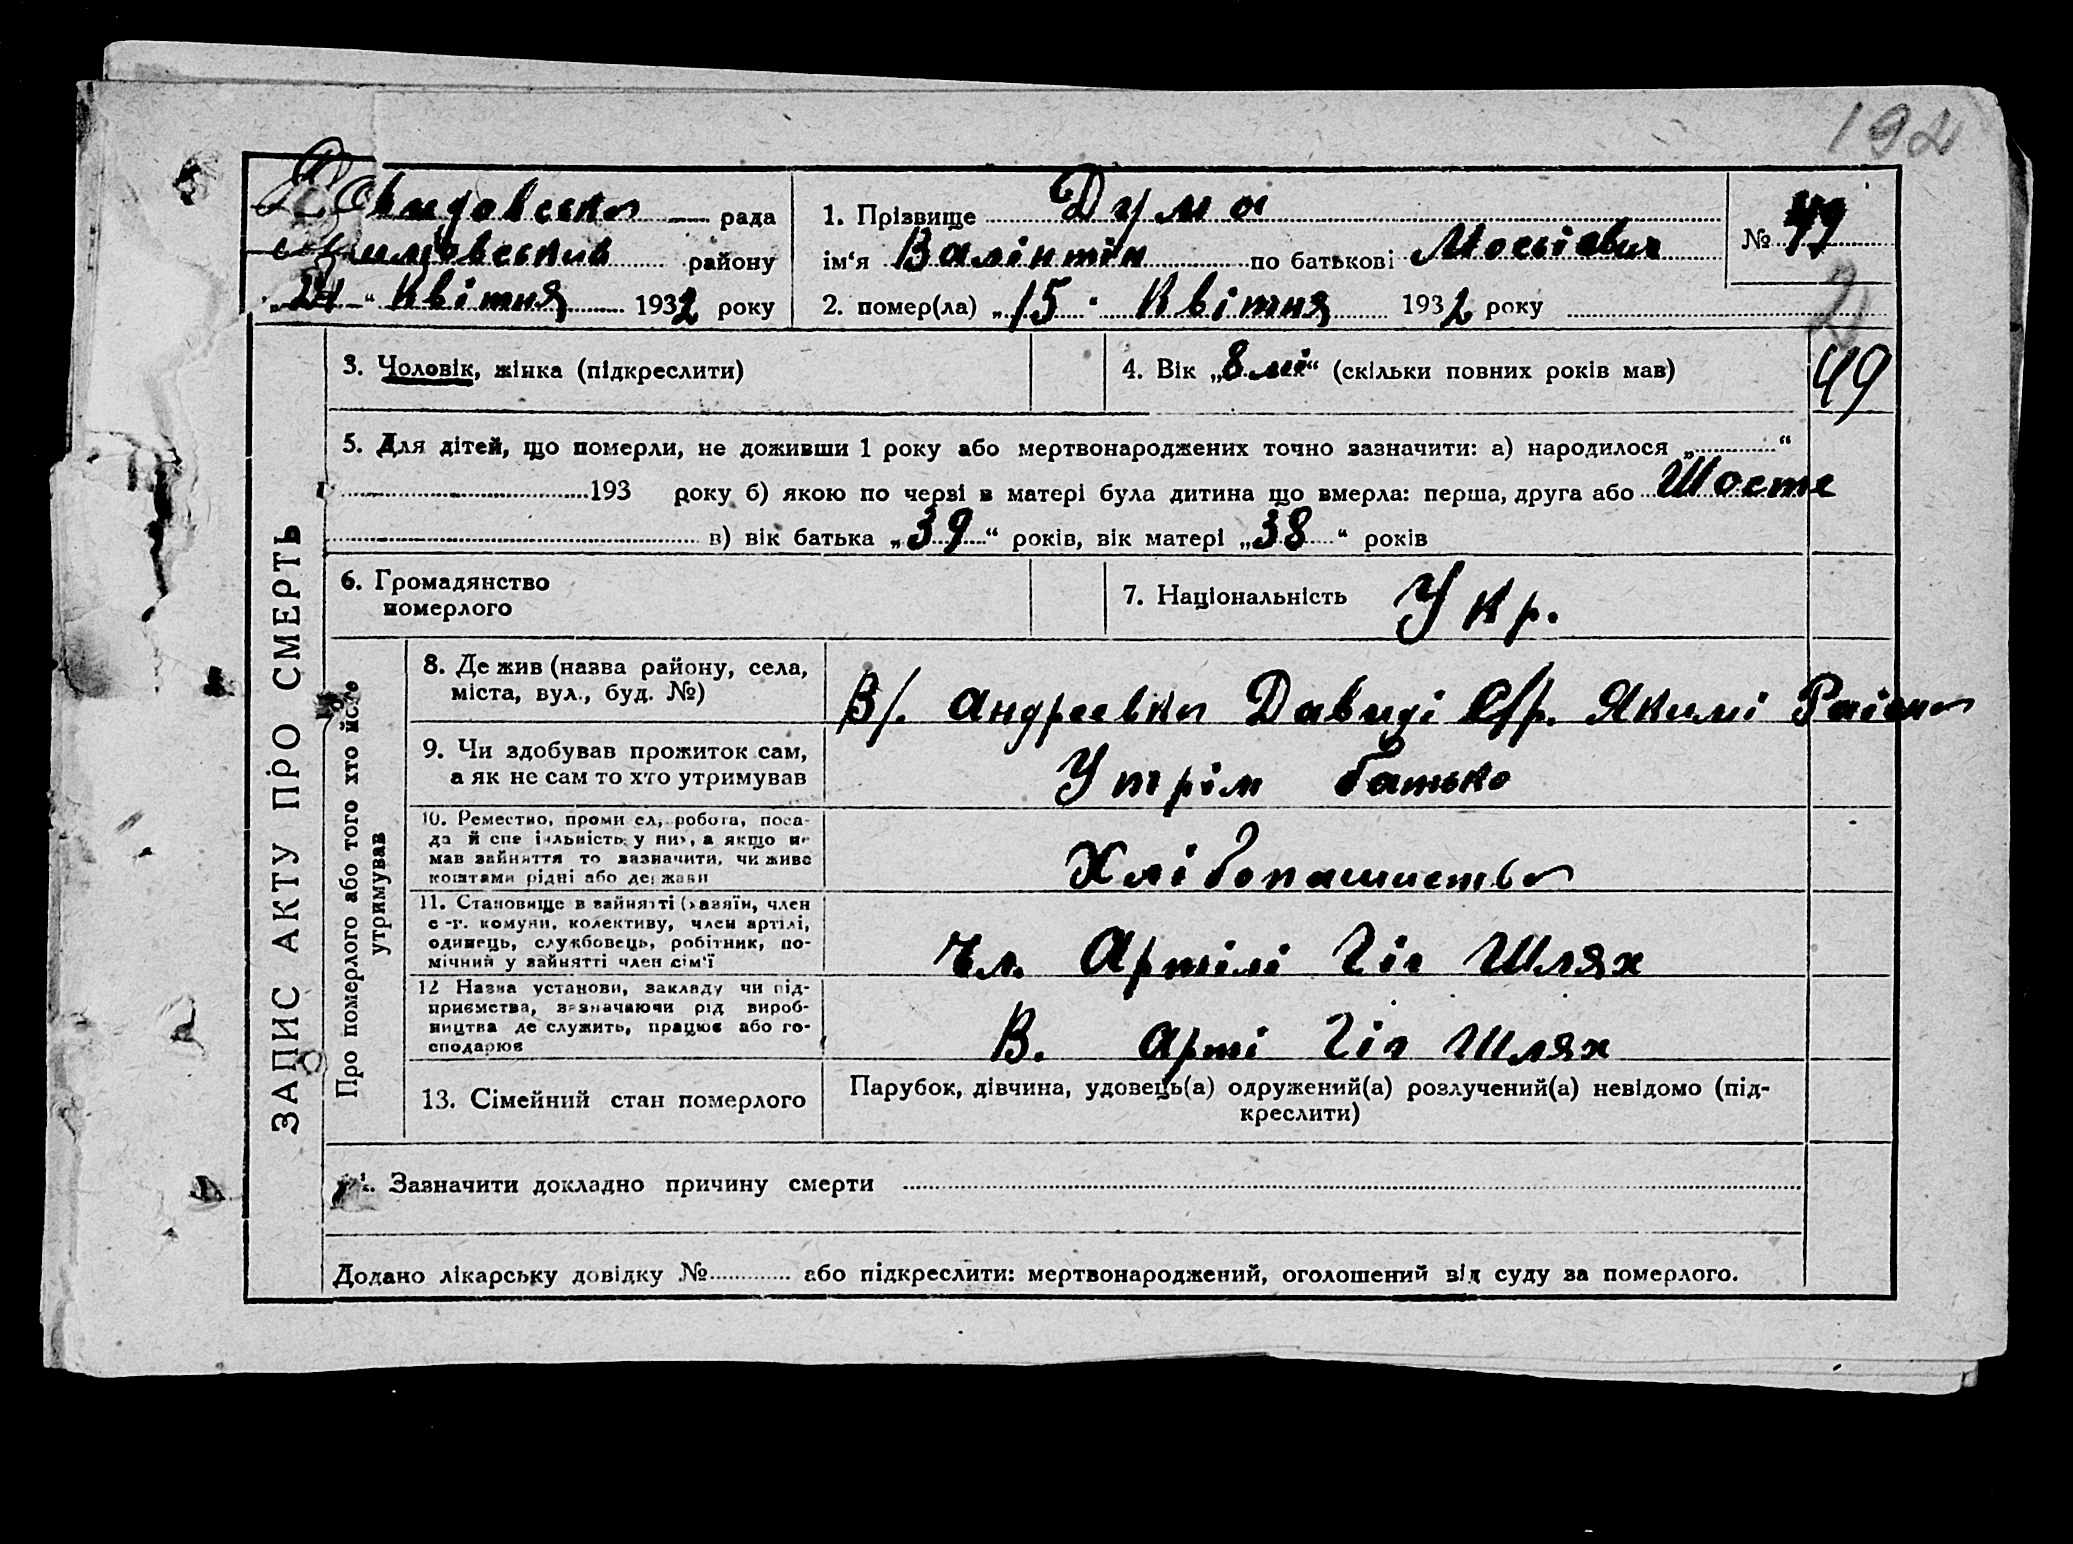 192
Давидовська рада
Якимовского району
„21“ Квітня 1932 року
1. Прізвище Дума
ім'я Валінтін по батькові Мосієвич
2. помер(ла) „15“ Квітня 1932 року
№ 49
2
3. Чоловік, жінка (підкреслити)
4. Вік „8 мі“ (скільки повних років мав)
49
5. Для дітей, що померли, не доживши 1 року або мертвонароджених точно зазначити: а) народилося „ “
193 року б) якою по черві в матері була дитина що вмерла: перша, друга або Шосте
в) вік батька „39“ років, вік матері „38“ років
6. Громадянство
померлого
7. Національність Укр.
ЗАПИС АКТУ ПРО СМЕРТЬ
Про померлого або того хто його
утримував
8. Де жив (назва району, села,
міста, вул., буд. №)
В/. Андреевка Давиді С/р. Якимі Раіона
9. Чи здобував прожиток сам,
а як не сам то хто утримував
Утрім батько
10. Ремество, промисел, робота, поса-
да й спеціяльність у них, а якщо не
мав зайняття то зазначити, чи живе
коштами рідні або держави
Хлібопашиство
11. Становище в зайнятті (хазяїн, член
с.-г. комуни, колективу, член артілі,
одинець, службовець, робітник, по-
мічний у зайнятті член сім'ї
Чл. Артілі Гіг Шлях
12 Назва установи, закладу чи під-
приємства, зазначаючи рід вироб-
ництва де служить, працює або го-
сподарює
В. Арті Гіг Шлях
13. Сімейний стан померлого
Парубок, дівчина, удовець(а) одружений(а) розлучений(а) невідомо (під-
креслити)
14. Зазначити докладно причину смерти
Додано лікарську довідку № або підкреслити: мертвонароджений, оголошений від суду за померлого.